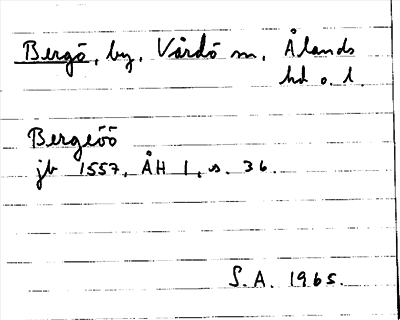 Bergö, by, Vårdö sn, Ålands
hd o. l.
Bergeöö
jb 1557, ÅH I, s. 36.
S.A. 1965.